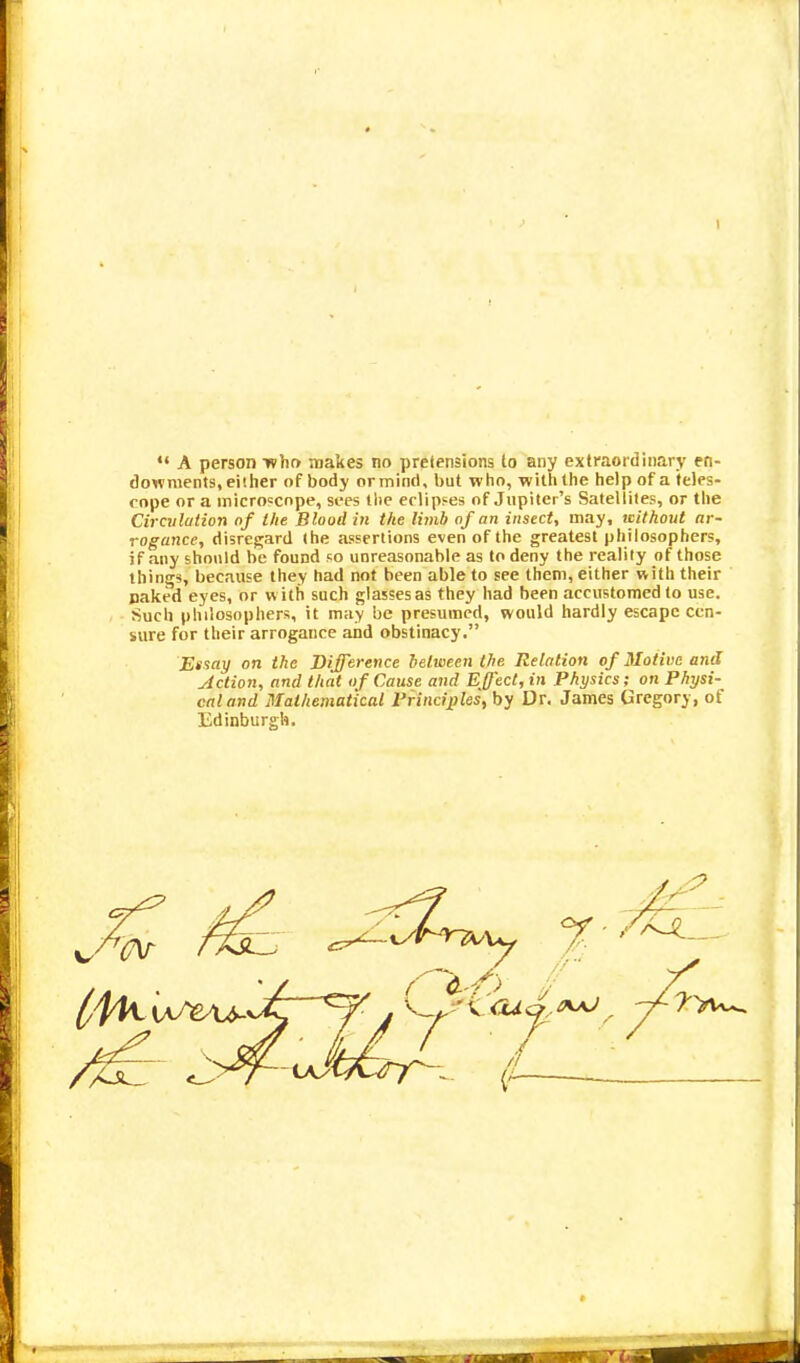 “ A person who makes no pretensions to any extraordinary en-
dowments, either of body or mind, but who, with the help of a teles-
cope or a microscope, sees the eclipses of Jupiter's Satellites, or the
Circulation of the Blood in the limb of an insect, may, without ar-
rogance, disregard the assertions even of the greatest philosophers,
if any should be found so unreasonable as to deny the reality of those
things, because they had not been able to see them, either with their
naked eyes, or with such glasses as they had been accustomed to use.
Such philosophers, it may be presumed, would hardly escape cen-
sure for their arrogance and obstinacy.”
Essay on the Difference between the Relation of Motive and
Action, and that of Cause and Effect, in Physics; on Physi-
cal and Mathematical Principles, by Dr. James Gregory, of
Edinburgh.
For the Library of the
University of Glasgow, from
the Author.